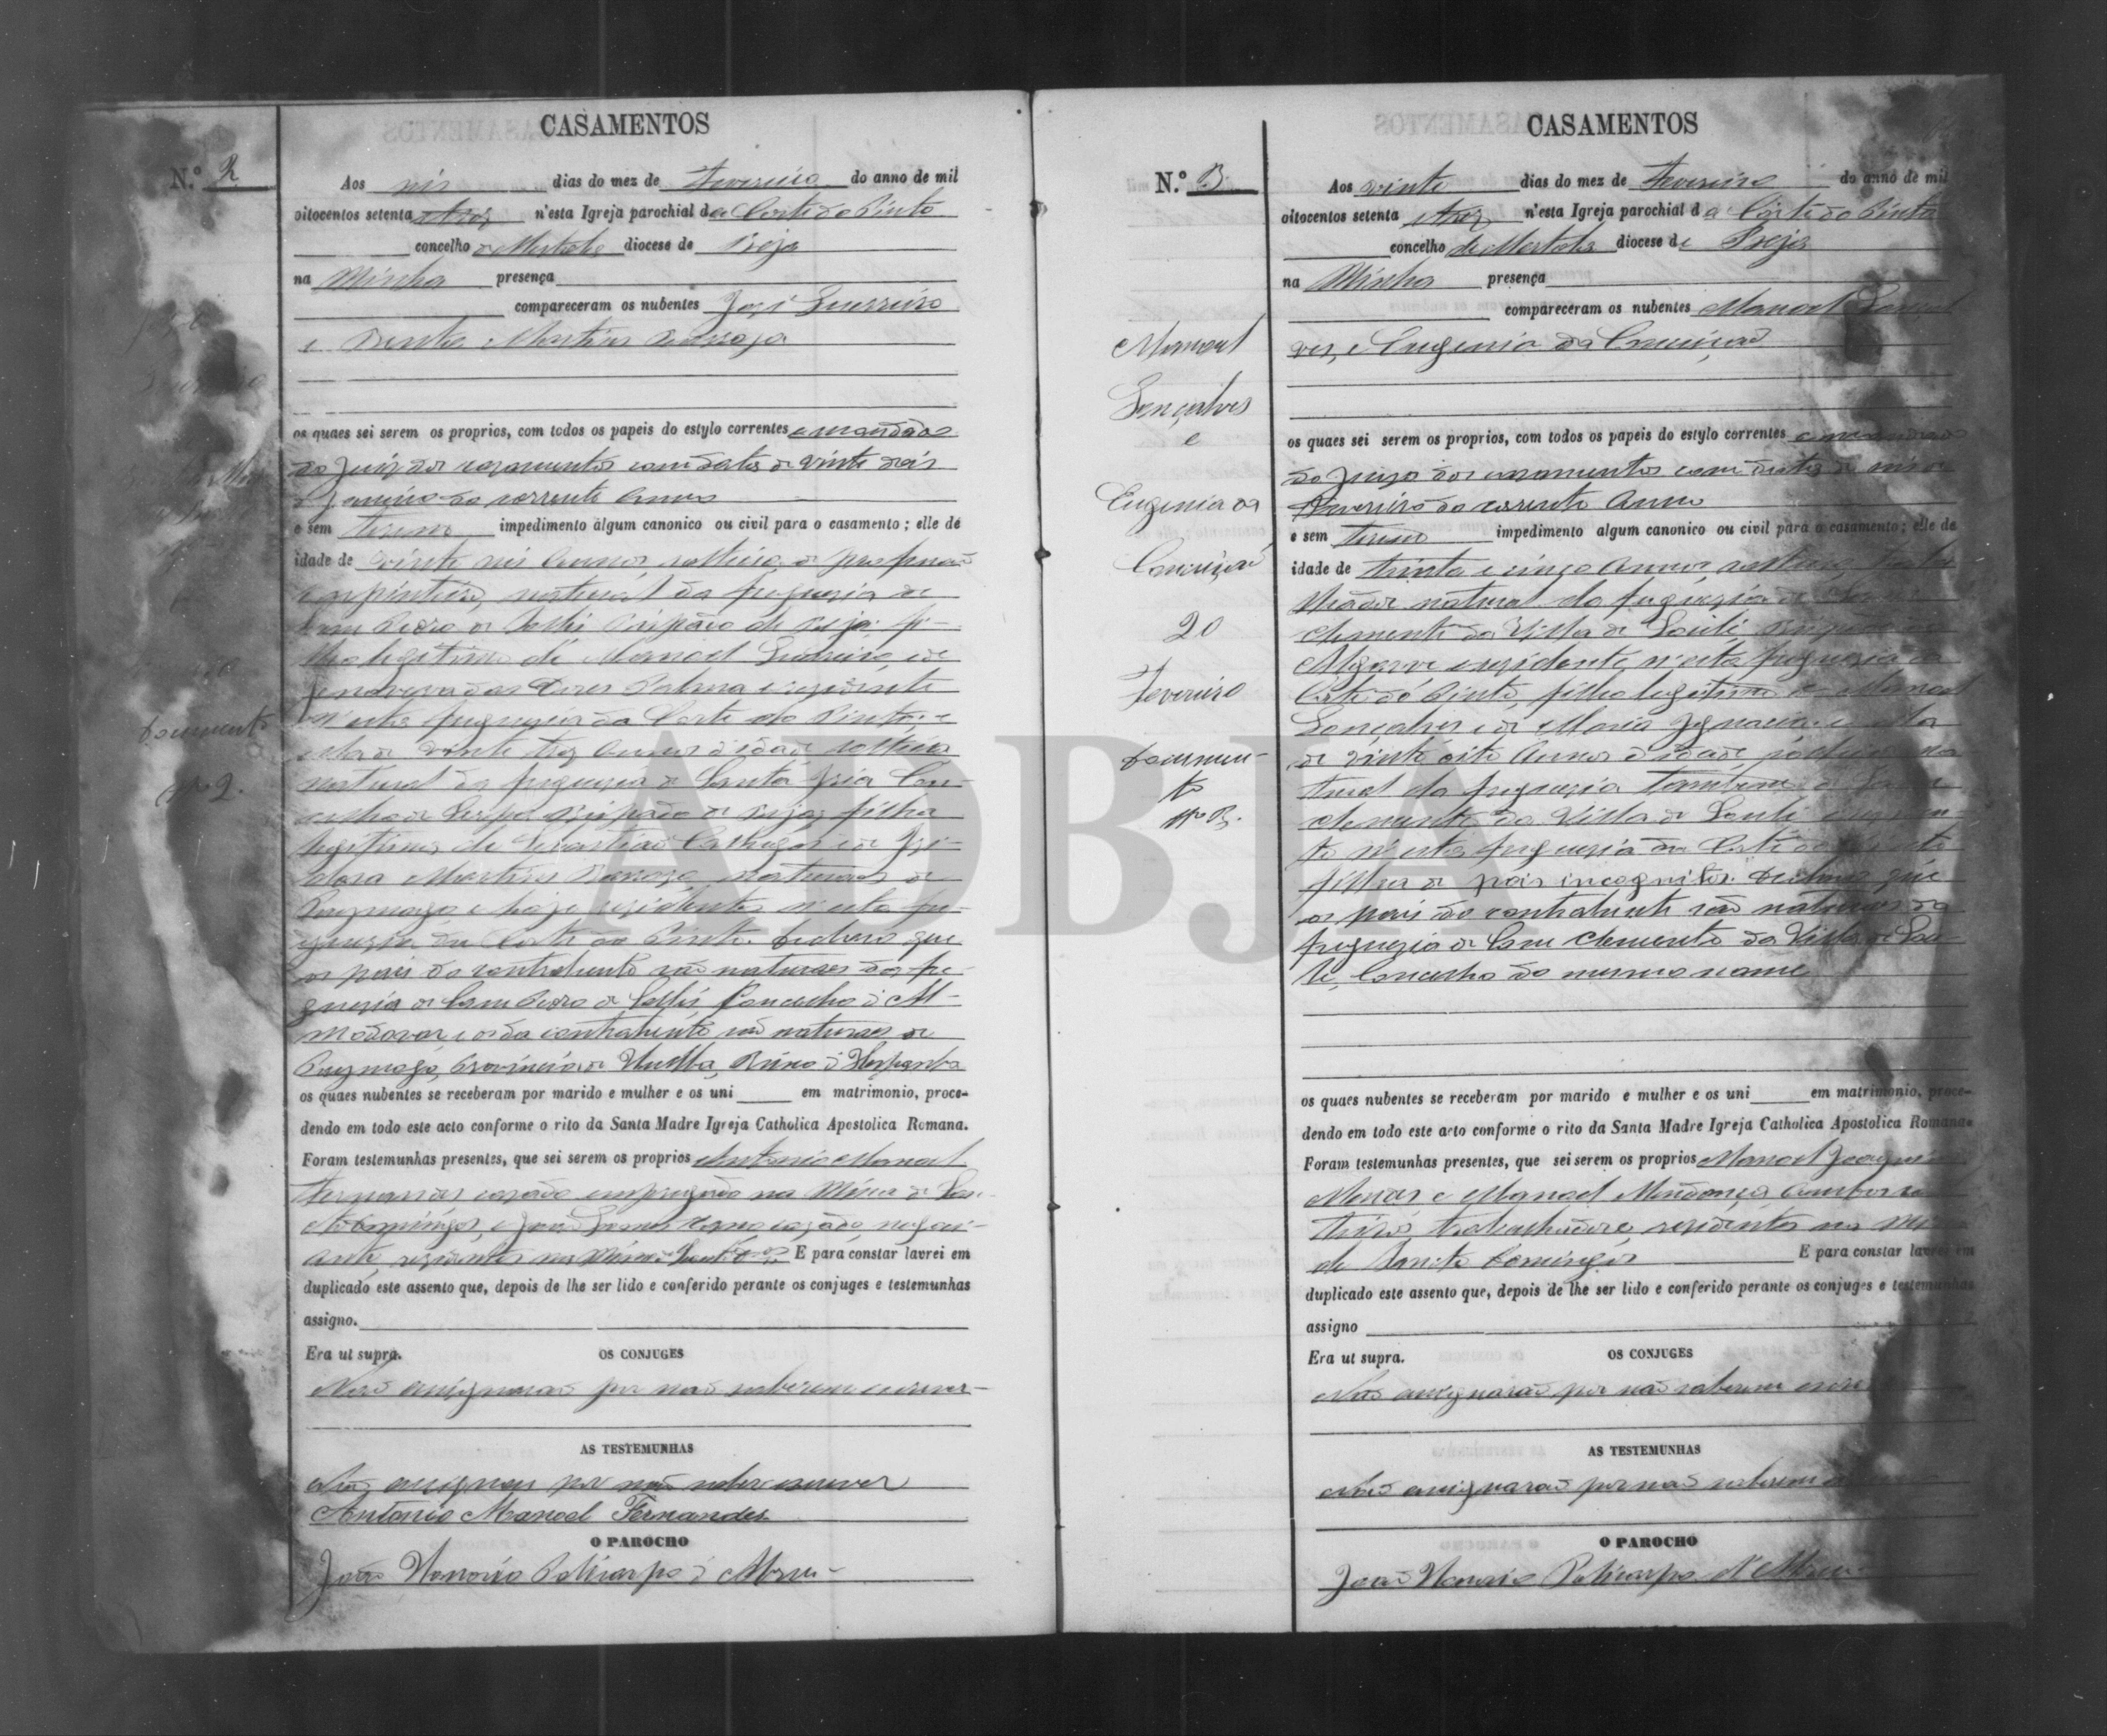 CASAMENTOS
N.º 2
Aos seis dias do mez de Fevereiro do anno de mil
oitocentos setenta e trez n'esta Igreja parochial de Corte do Pinto
concelho de Mertola diocese de Beja
na Minha presença
compareceram os nubentes José Guerreiro
e Martins
os quaes sei serem os proprios, com todos os papeis do estylo correntes e mandado
do Juizo dos cazamentos com data de vinte seis
de Janeiro do corrente Anno
e sem terem impedimento algum canonico ou civil para o casamento; elle de
idade de vinte seis Annos, solteiro, de profissão
carpinteiro, natural da freguezia de
Sam Pedro de Bispado de Beja fi-
lho legitimo de Manoel Guerreiro, e de
das Dores Palma e rezidente
n'esta freguezia da Corte do Pinto, e
ella de vinte trez Annos d'idade solteira
natural da freguezia de Santa Iria Con-
celho de Serpa Bispado de Beja, filha
legitima de Sebastião e de Izi-
dora Martins naturaes de
Paymogo e hoje rezidentes n'esta fre-
guezia da Corte do Pinto. Declaro que
os pais do contrahente são naturaes da fre-
guezia de Sam Pedro de Concelho d'Al-
modovar e os da contrahente são naturaes de
Paymogo, Provincia de Huelba, Reino d'Hespanha
os quaes nubentes se receberam por marido e mulher e os uni em matrimonio, proce-
dendo em todo este acto conforme o rito da Santa Madre Igreja Catholica Apostolica Romana.
Foram testemunhas presentes, que sei serem os proprios Antonio Manoel
Fernandes cazado empregado na Mina de San-
to Domingos, e João Gomes cazado, negoci-
ante, rezidentes na Mina E para constar lavrei em
duplicado este assento que, depois de lhe ser lido e conferido perante os conjuges e testemunhas
assigno.
Era ut supra.
OS CONJUGES
Não assignarão por não saberem escrever
AS TESTEMUNHAS
Não assignou por não saber escrever
Antonio Manoel Fernandes
O PAROCHO
João Honorio Policarpo d'
Documento
nº 2.
CASAMENTOS
N.º 3
Manoel
Gonçalves
e
Eugenia da
Conceição
20
Fevereiro
Documen-
to
nº 3.
Aos vinte dias do mez de Fevereiro do anno de mil
oitocentos setenta e trez n'esta Igreja parochial da Corte do Pinto
concelho de Mertola diocese de Beja
na Minha presença
compareceram os nubentes Manoel Gonçal
ves, e Eugenia da Conceição
os quaes sei serem os proprios, com todos os papeis do estylo correntes e mandado
do Juizo dos cazamentos com data de seis de
Fevereiro do corrente Anno
e sem terem impedimento algum canonico ou civil para o casamento; elle de
idade de trinta e cinco Annos, solteiro, traba
lhador natural da freguezia de Sam
Clemente da Villa de Loulé Bispado do
Algarve e rezidente n'esta freguezia da
Corte do Pinto, filho legitimo de Manoel
Gonçalves e de Maria Ignacia e ella
de vinte oito Annos d'idade, solteira na
tural da freguezia tambem de Sam
Clemente da Villa de Loulé e reziden
te n'esta freguezia da Corte do Pinto
filha de pais incognitos. Declaro que
os pais do contrahente são naturaes da
freguezia de Sam Clemente da Villa de Lou-
lé, Concelho do mesmo nome
os quaes nubentes se receberam por marido e mulher e os uni em matrimonio, proce-
dendo em todo este acto conforme o rito da Santa Madre Igreja Catholica Apostolica Romana.
Foram testemunhas presentes, que sei serem os proprios Manoel Joaquim
e Manoel Mendonça ambos sol
teiros, trabalhadores, rezidentes na Mina
de Santo Domingos E para constar lavrei em
duplicado este assento que, depois de lhe ser lido e conferido perante os conjuges e testemunhas
assigno
Era ut supra.
OS CONJUGES
Não assignarão por não saberem escre
AS TESTEMUNHAS
Não assignarão por não saberem
O PAROCHO
João Honorio Policarpo d'
ADBJA